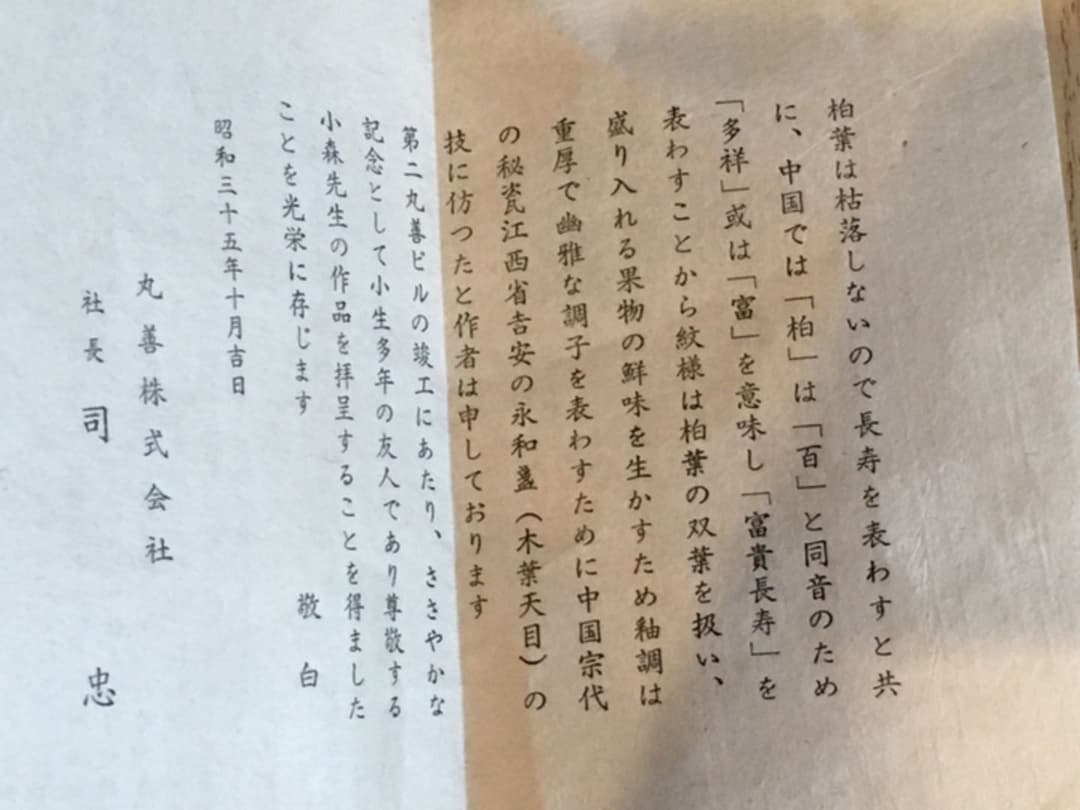 柏葉は枯落しないので長寿を表わすと共
に、中国では「柏」は「百」と同音のため
「多祥」或は「富」を意味し「富貴長寿」を
表わすことから紋様は柏葉の双葉を扱い、
盛り入れる果物の鮮味を生かすため釉調は
重厚で幽雅な調子を表わすために中国宗代
の秘瓷江西省吉安の永和盞（木葉天目）の
技に仿つたと作者は申しております
第二丸善ビルの竣工にあたり、ささやかな
記念として小生多年の友人であり尊敬する
小森先生の作品を拝呈することを得ました
ことを光栄に存じます
敬白
昭和三十五年十月吉日
丸善株式会社
社長 司 忠